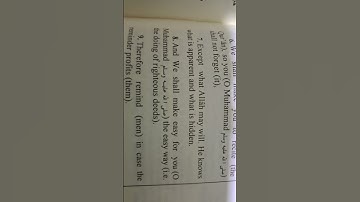 6. We shall make you to recite (the
Qur'ân), so you (O Muhammad صلى الله عليه وسلم)
shall not forget (it),
7. Except what Allâh may will. He knows
what is apparent and what is hidden.
8. And We shall make easy for you (O
Muhammad صلى الله عليه وسلم) the easy way (i.e.
the doing of righteous deeds).
9. Therefore remind (men) in case the
reminder profits (them).